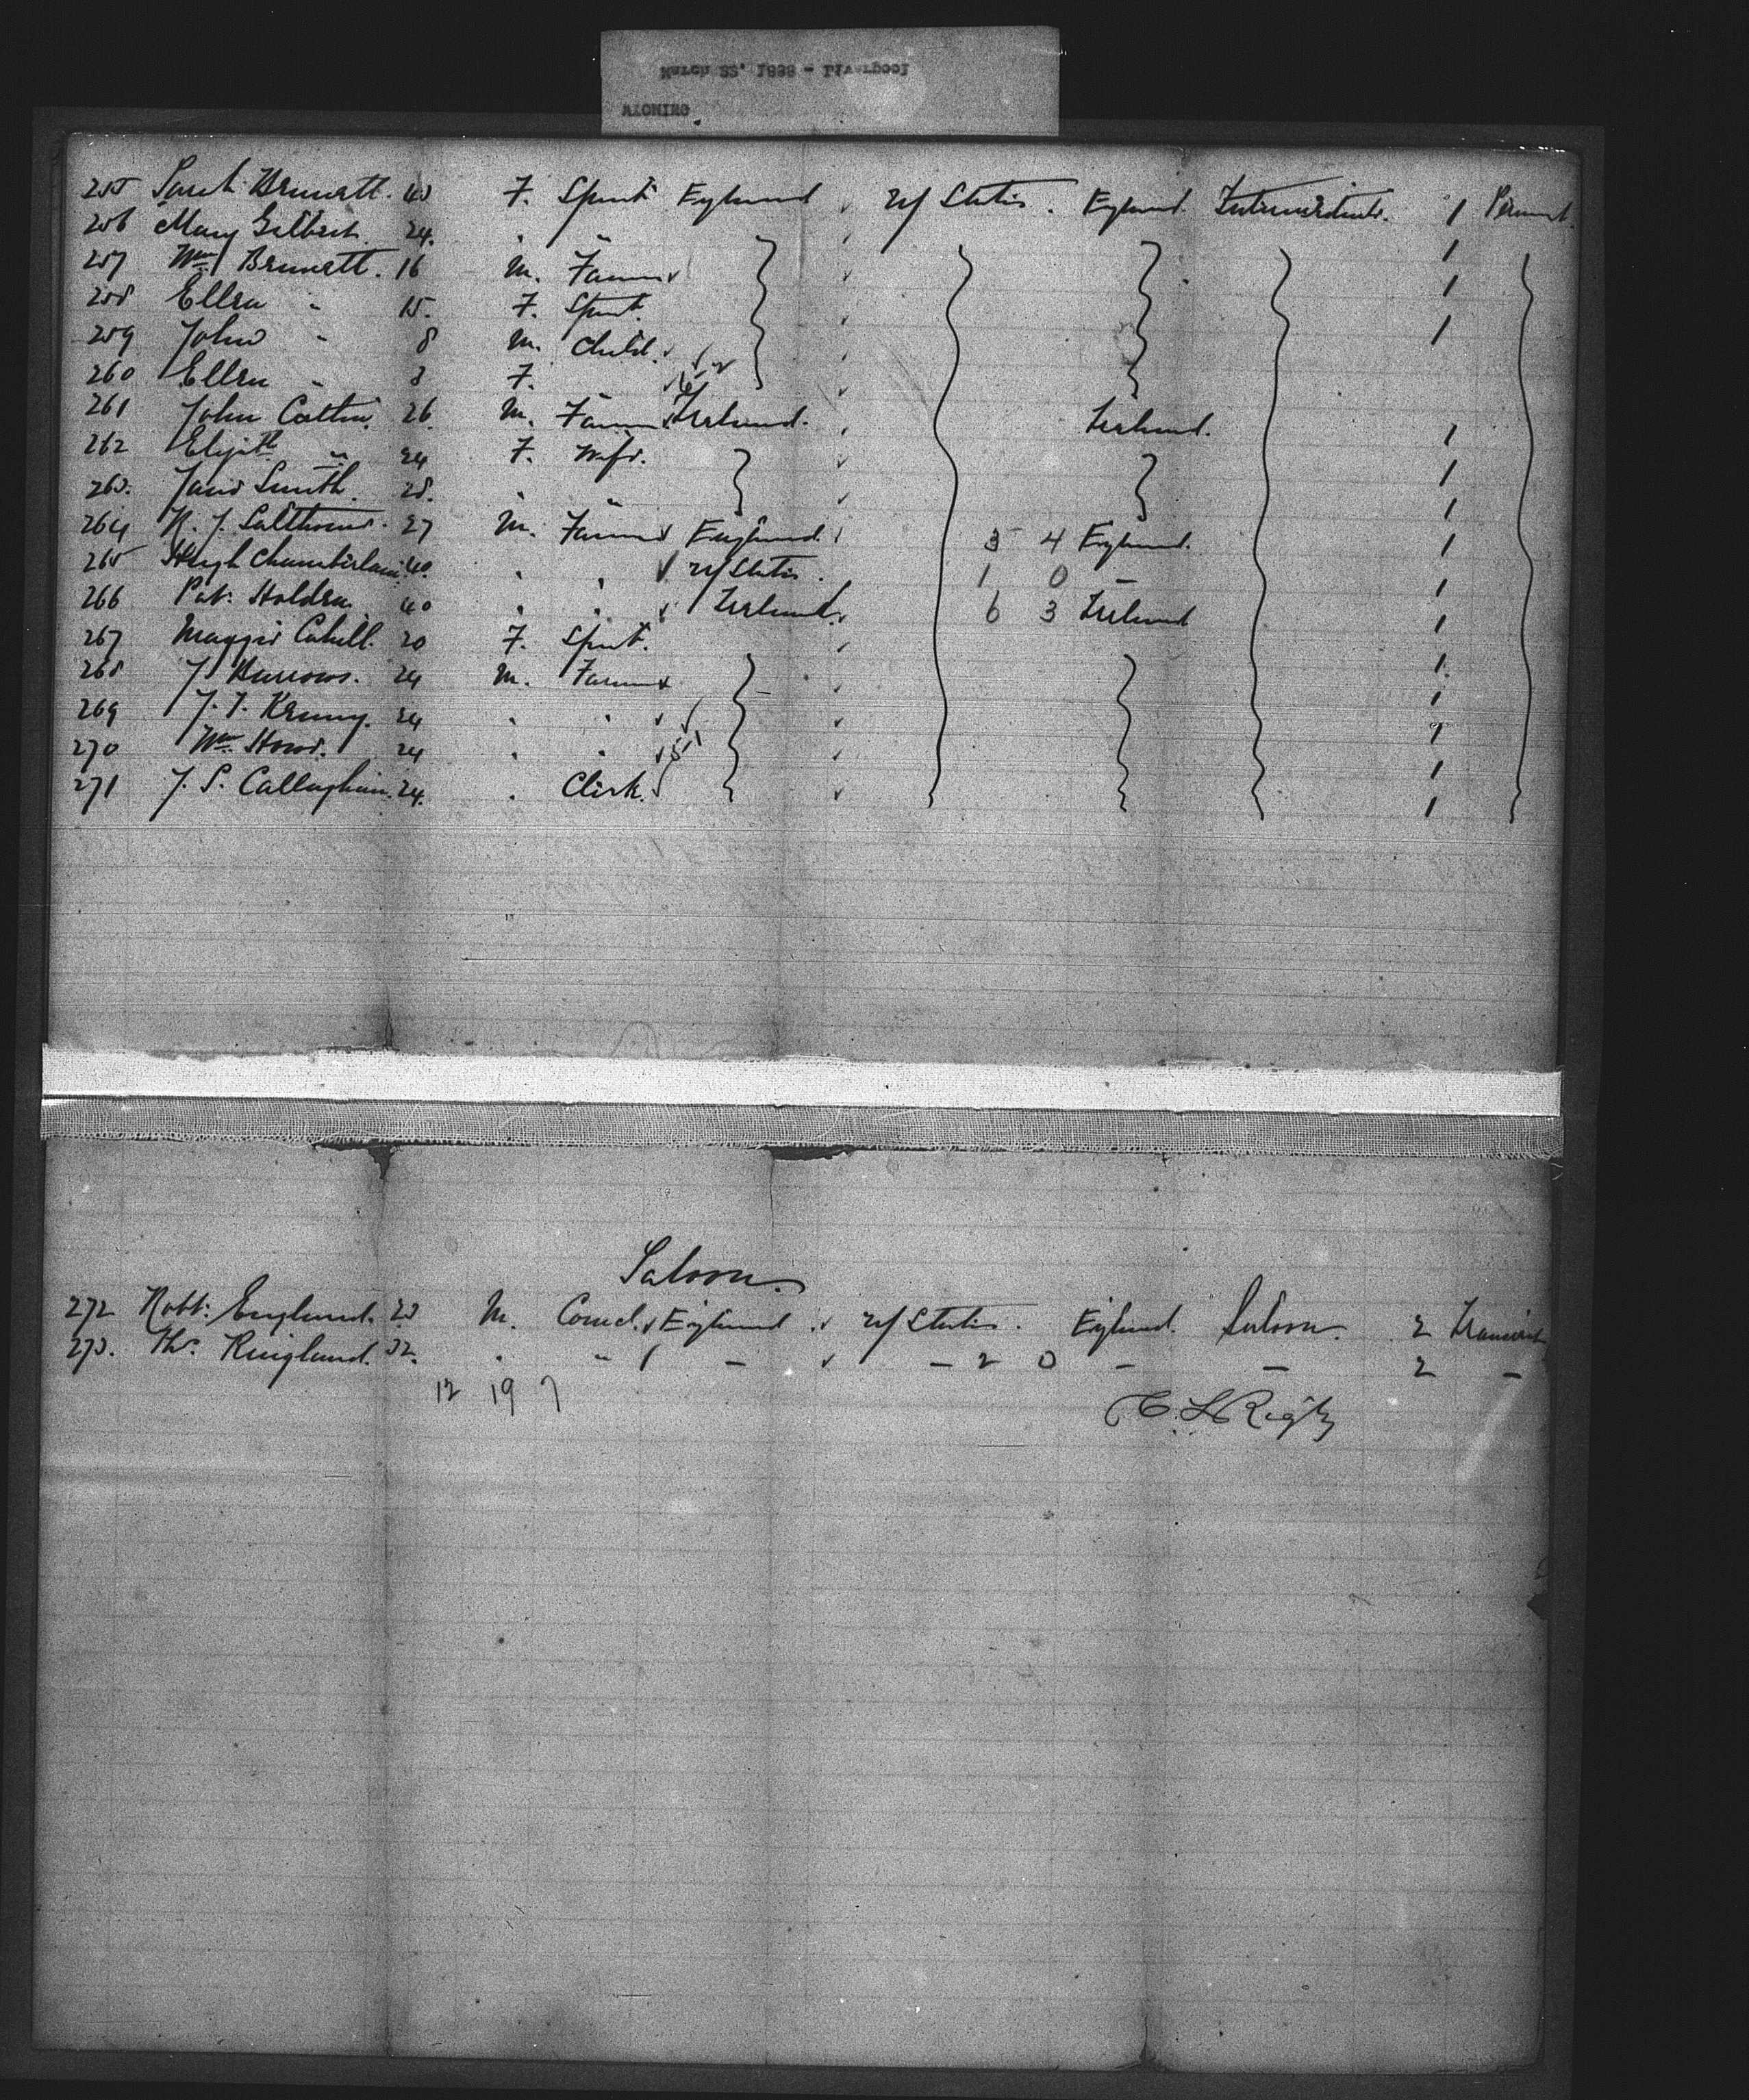 WYOMING
March 22, 1888 - Liverpool
255 Sarah Brunett. 40 F. Spinst England U/States. England. Intermediate. 1 Permant.
256 Mary Gilbert 24. " " 1
257 Wm Brunett. 16 M. Farmer 1
258 Ellen " 15. F. Spinst. 1
259 John " 8 M. Child.
260 Ellen " 3 F. "
261 John Cottin. 26 M. Farmer Ireland. Ireland. 1
262 Elizth " 24 F. Wife. 1
263. Jane Smith. 28. " " 1
264 27 M. Farmer England. 3 4 England. 1
265 Hugh Chamberlain. 40. " " U/States. 1 0 - 1
266 Pat. Holden 40 " " Ireland. 6 3 Ireland 1
267 Maggie Cahill. 20 F. Spinst. 1
268 J Burrows. 24 M. Farmer 1
269 J. J. Kenny. 24 " " 1
270 Wm Howe. 24 " " 5-1 1
271 J. S. Callaghan. 24. " Clerk. 1
Saloon.
272 Robt: England. 23 M. Comcl. England U/States. England. Saloon. 2 Transient
273. Ths. Ringland. 32. " " - - 2 0 - - 2 -
12 19 7